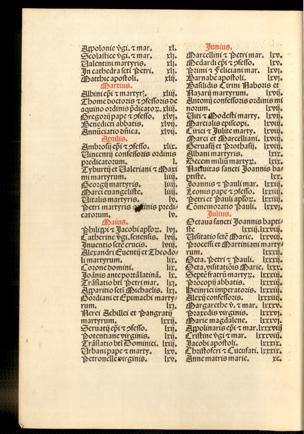 Appolonie v̄gī. ⁊ mar. xl.
Scolastice v̄gī. ⁊ mar. xl.
Valentini martyris. xl.
In cathedra scti Petri. xlj.
Matthie apostoli. xlij.
Martius.
Albini ep̄i ⁊ martyr. xlij.
Thome doctoris ⁊ ɔfessoris de
aquino ordinis p̄dicatoꝝ. xliij.
Gregorij pape ⁊ ɔfesso. xlv.
Benedicti abbatis. xlvj.
Annūciatio dn̄ica. xlvij.
Aprilis.
Ambrosij ep̄i ⁊ ɔfesso. xlix.
Vincentij confessoris ordinis
predicatorum. l.
Tyburtij et Valeriani ⁊ Maxi
mi martyrum. liij.
Georgij martyris. liij.
Marci euangeliste. liij.
Vitalis martyris. lv.
Petri martyris ordinis predi-
catorum. lv.
Maius.
Philippi ⁊ Jacobi aplorꝝ. lvj.
Catherine v̄gī. senensis. lvij.
Inuentio scte crucis. lviij.
Alexandri Euentij et Theodor
li martyrum. lx.
Corone domini. lx.
Joānis ante portā latinā. lx.
Trāslatio bti Petri mar. lx.
Apparitio scti Michaelis. lxj.
Gordiani et Epimachi martyr
rum. lxj.
Nerei Achillei et Pangratij
martyrum. lxij.
Seruatij ep̄i ⁊ ɔfesso. lxij.
Potentiane virginis. lxij.
Trāslatio bti Dominici. lxij.
Urbani pape ⁊ marty. lxv.
Petronelle virginis. lxv.
Junius.
Marcellini ⁊ Petri mar. lxv.
Medardi ep̄i ⁊ ɔfesso. lxv.
Primi ⁊ Feliciani mar. lxvj.
Barnabe apostoli. lxvj.
Basilidis Cirini Naboris et
Nazarij martyrum. lxvij.
Antonij confessoris ordinis mi
norum. lxvij.
Viti ⁊ Modesti marty. lxvij.
Martialis episcopi. lxvij.
Cirici ⁊ Julite martyr. lxvij.
Marci et Marcelliani. lxviij.
Geruasij et Prothasij. lxviij.
Albani martyris. lxix.
Decem miliū martyꝝ. lxix.
Natiuitas sancti Joannis ba
ptiste. lxx.
Joannis ⁊ Pauli mar. lxxij.
Leonis pape ⁊ ɔfesso. lxxiij.
Petri ⁊ Pauli aplorꝝ. lxxiij.
Cōmemoratio Pauli. lxxv.
Julius.
Octaua sancti Joannis bapti-
ste. lxxvij.
Visitatio scte Marie. lxxvij.
Processi et Martiniani marty-
rum. lxxx.
Octa. Petri ⁊ Pauli. lxxxj.
Octa. visitatiōis Marie. lxxx.
Septē fratrū martyꝝ. lxxxij.
Procopij abbatis. lxxxij.
Henrici imperatoris. lxxxij.
Alexij confessoris. lxxxiij.
Margarethe v̄. ⁊ mar. lxxxv.
Praxedis virginis. lxxxv.
Marie magdalene. lxxxv.
Apolinaris ep̄i ⁊ mar. lxxxviij
Cristine v̄gī ⁊ mar. lxxxviij
Jacobi apostoli. lxxxix.
Christoferi ⁊ Cucufati. lxxxix.
Anne matris marie. xc.